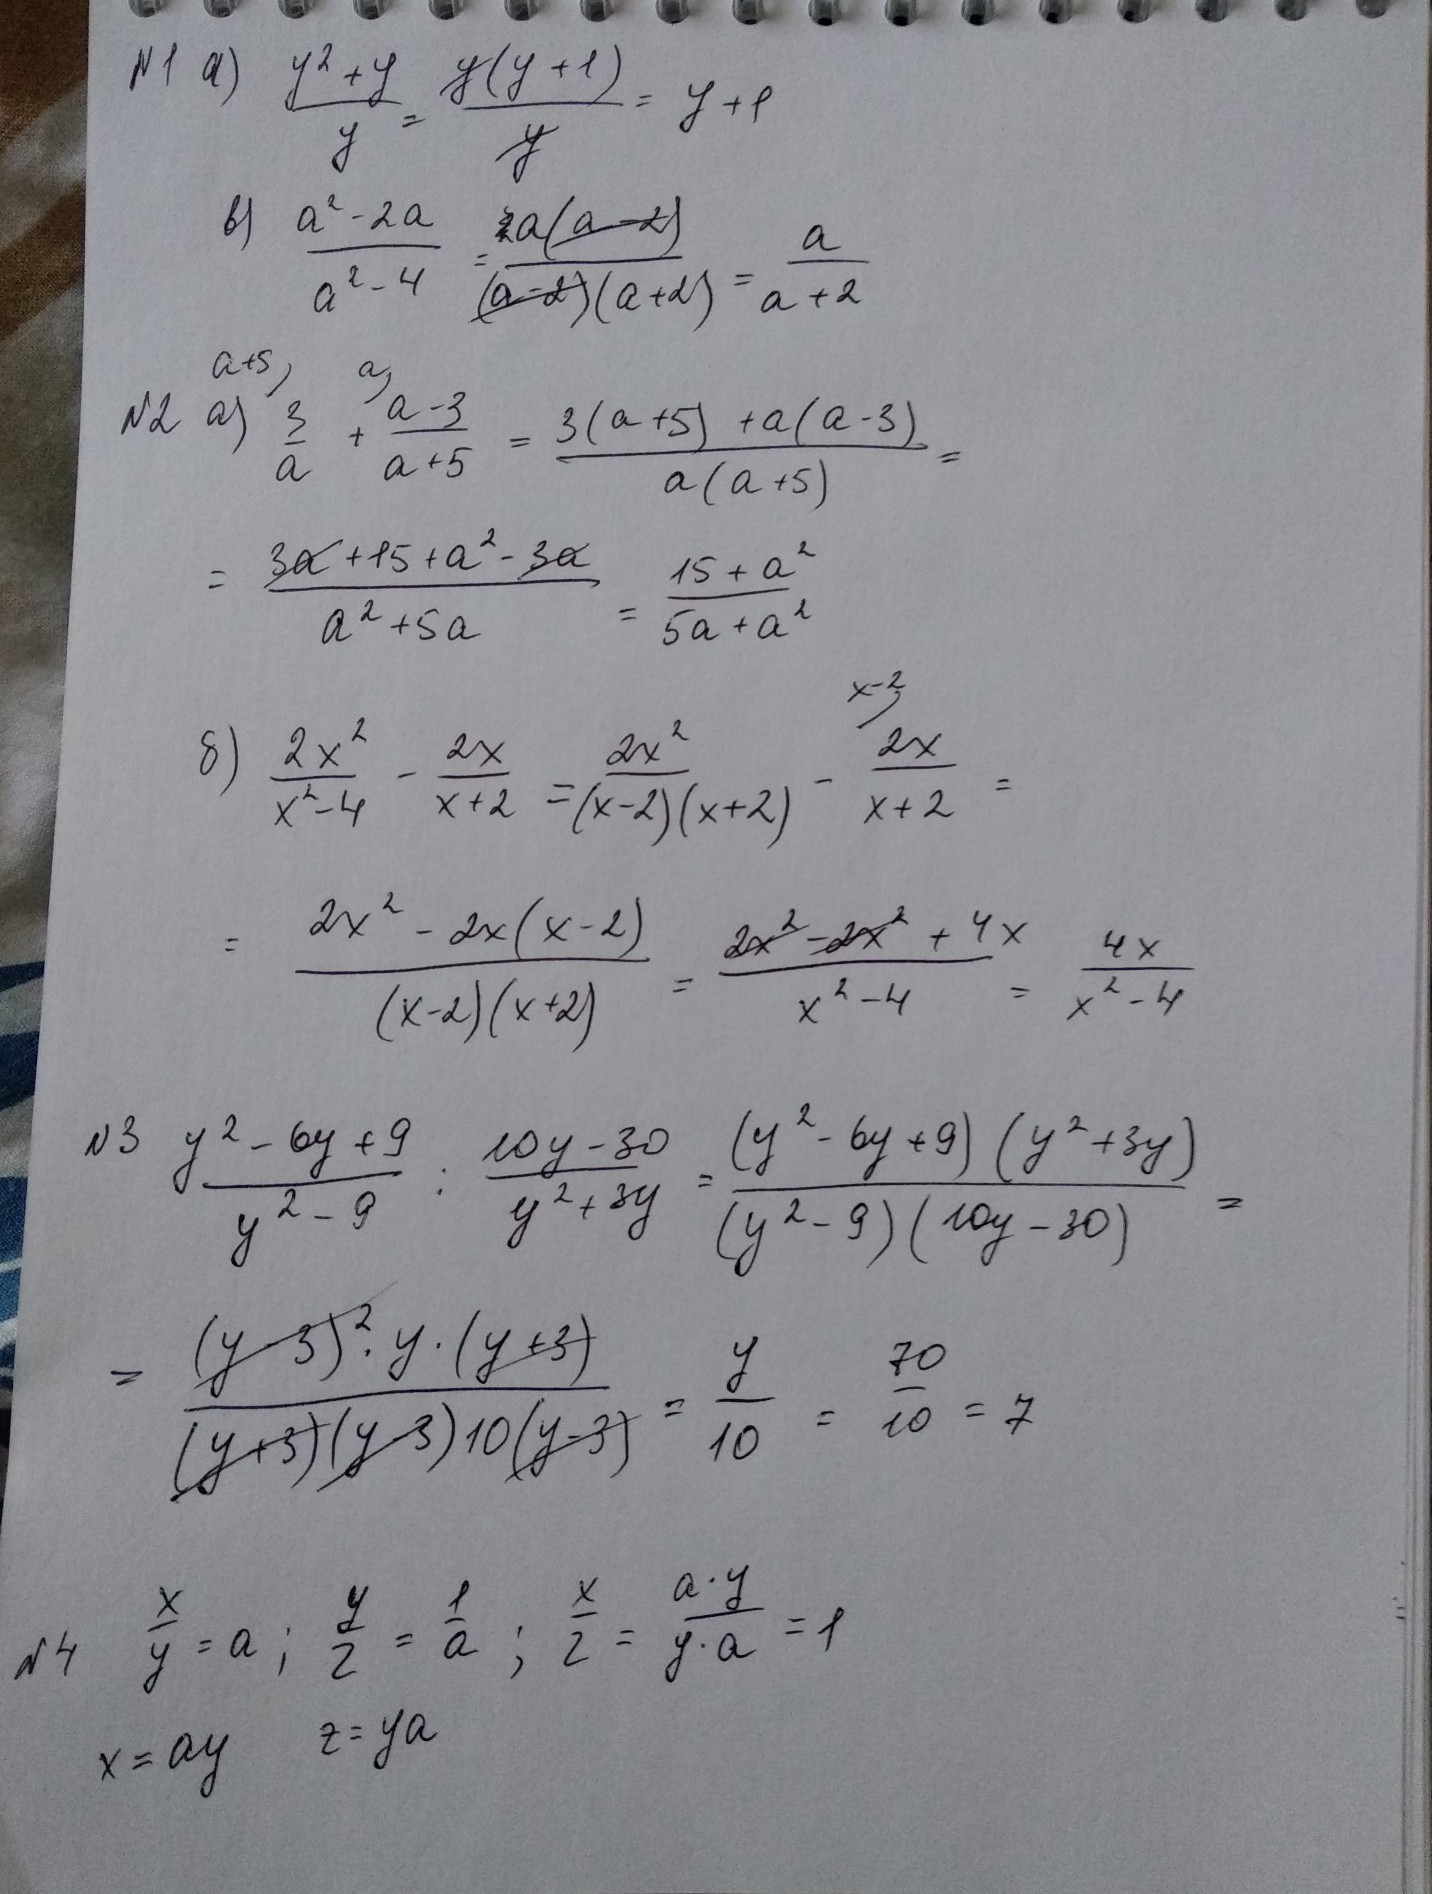 №1 а) (y² + y)/y = y(y + 1)/y = y + 1
в) (a² - 2a)/(a² - 4) = a(a - 2)/((a - 2)(a + 2)) = a/(a + 2)
a+5, a,
№2 а) 3/a + (a - 3)/(a + 5) = (3(a + 5) + a(a - 3))/(a(a + 5)) =
= (3a + 15 + a² - 3a)/(a² + 5a) = (15 + a²)/(5a + a²)
x-2,
б) 2x²/(x² - 4) - 2x/(x + 2) = 2x²/((x - 2)(x + 2)) - 2x/(x + 2) =
= (2x² - 2x(x - 2))/((x - 2)(x + 2)) = (2x² - 2x² + 4x)/(x² - 4) = 4x/(x² - 4)
№3 (y² - 6y + 9)/(y² - 9) : (10y - 30)/(y² + 3y) = ((y² - 6y + 9)(y² + 3y))/((y² - 9)(10y - 30)) =
= ((y - 3)² · y · (y + 3))/((y + 3)(y - 3)10(y - 3)) = y/10 = 70/10 = 7
№4 x/y = a ; y/z = 1/a ; x/z = (a · y)/(y · a) = 1
x = ay z = ya